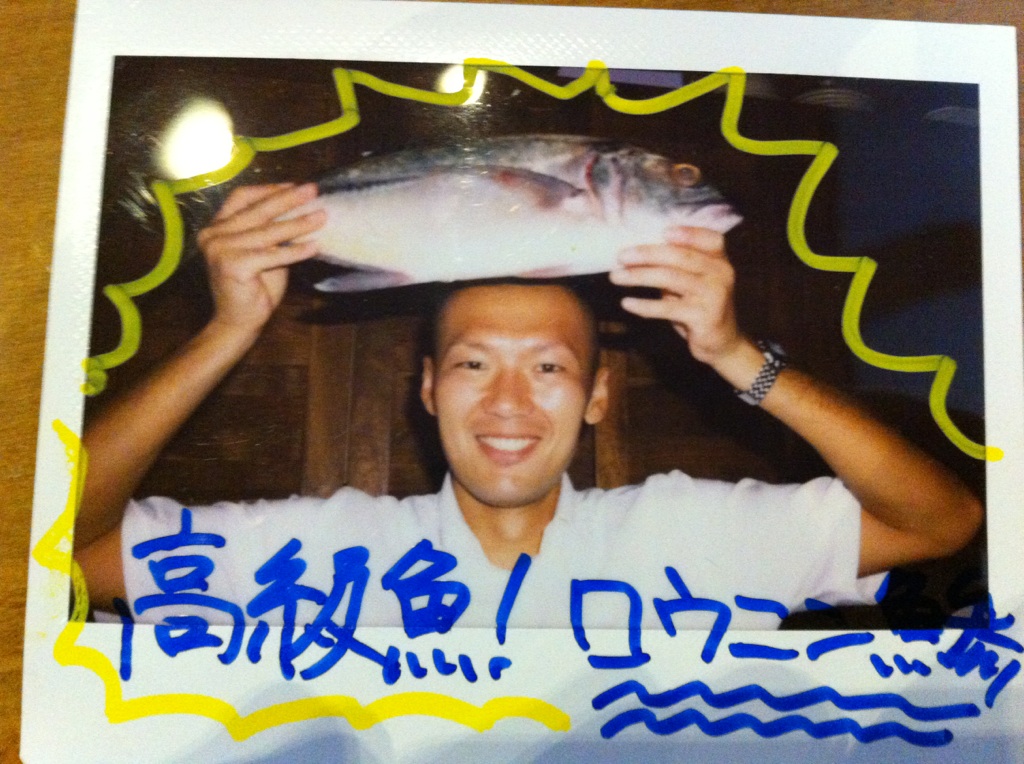 高級魚! ロウニン鯵